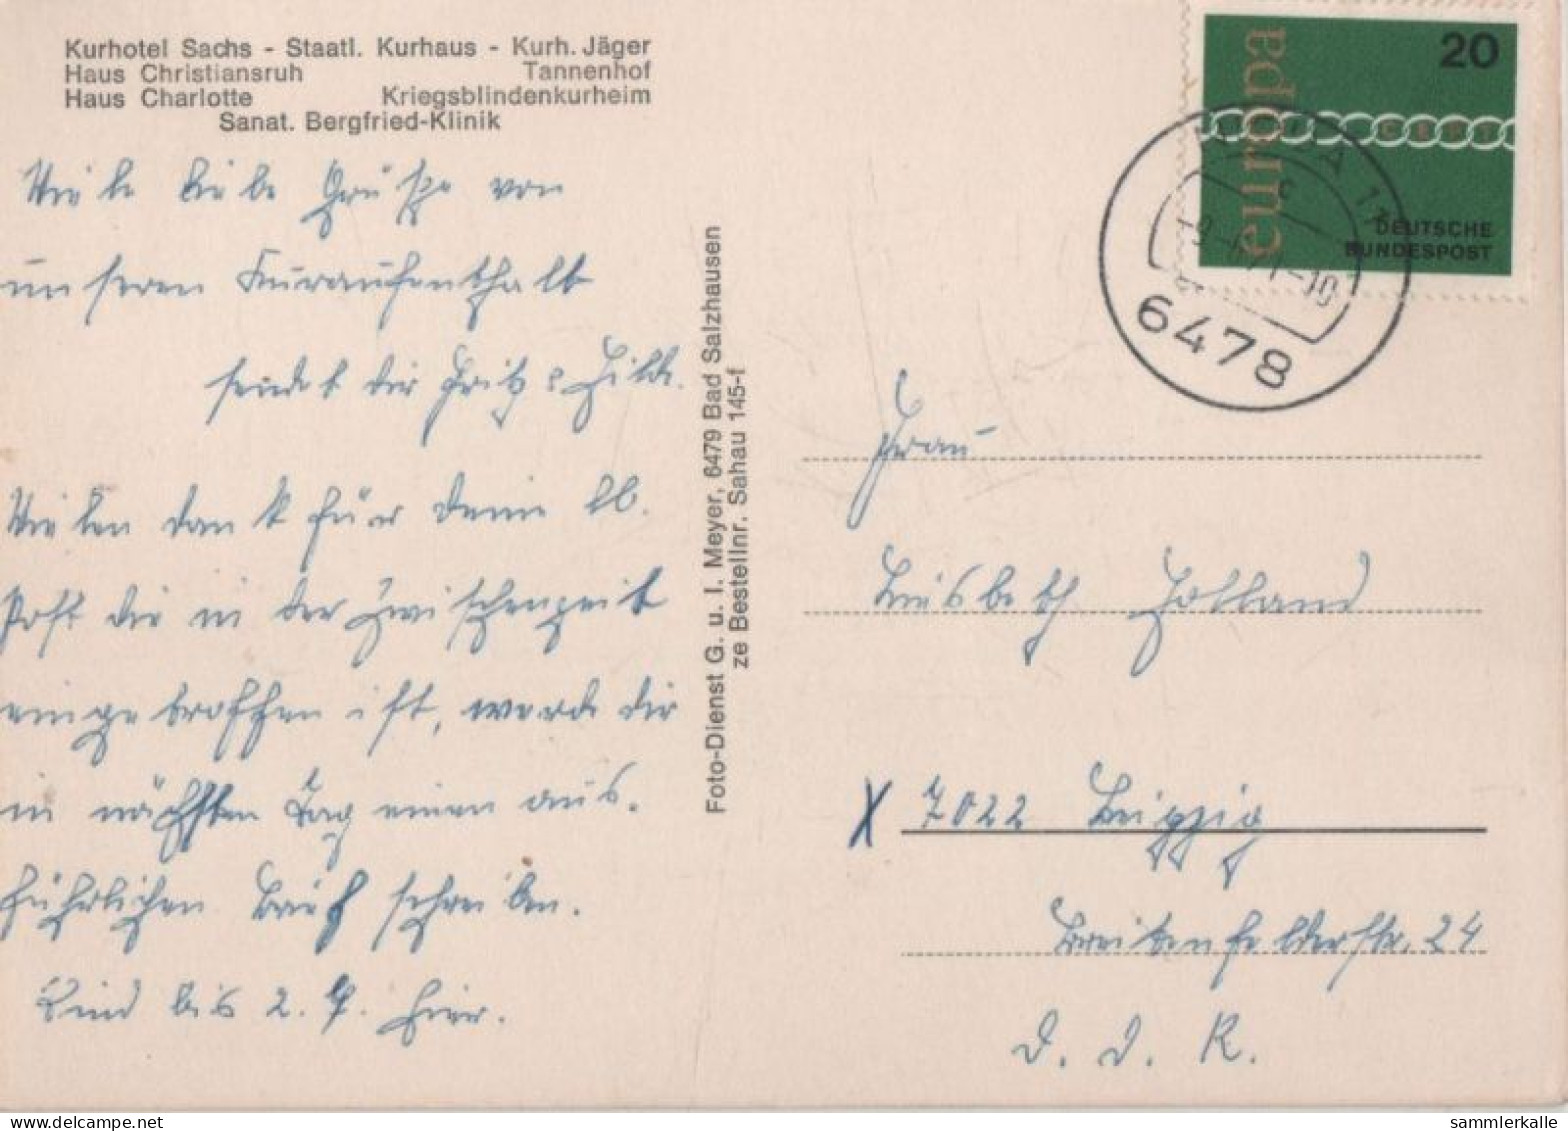 Kurhotel Sachs - Staatl. Kurhaus - Kurh. Jäger
Haus Christiansruh Tannenhof
Haus Charlotte Kriegsblindenkurheim
Sanat. Bergfried-Klinik
Viele liebe Grüße von
unseren Kuraufenthalt
sendet dir Fritz u Hilde.
Vielen dank für deine lb.
Post die in der Zwischenzeit
eingetroffen ist, werde dir
in nächsten Tag einen aus-
führlichen Brief schreiben.
Sind bis 2. 9. hier.
Foto-Dienst G. u. I. Meyer, 6479 Bad Salzhausen
ze Bestellnr. Sahau 145-f
europa
20
CEPT
DEUTSCHE
BUNDESPOST
6478
Frau
Liesbeth Holland
X 7022 Leipzig
Breitenfelderstr. 24
D. D. R.
sammlerkalle